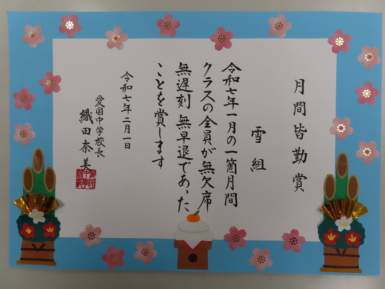 月間皆勤賞
雪組
令和七年一月の一箇月間
クラスの全員が無欠席
無遅刻 無早退であった
ことを賞します
令和七年二月一日
愛国中学校長
織田奈美